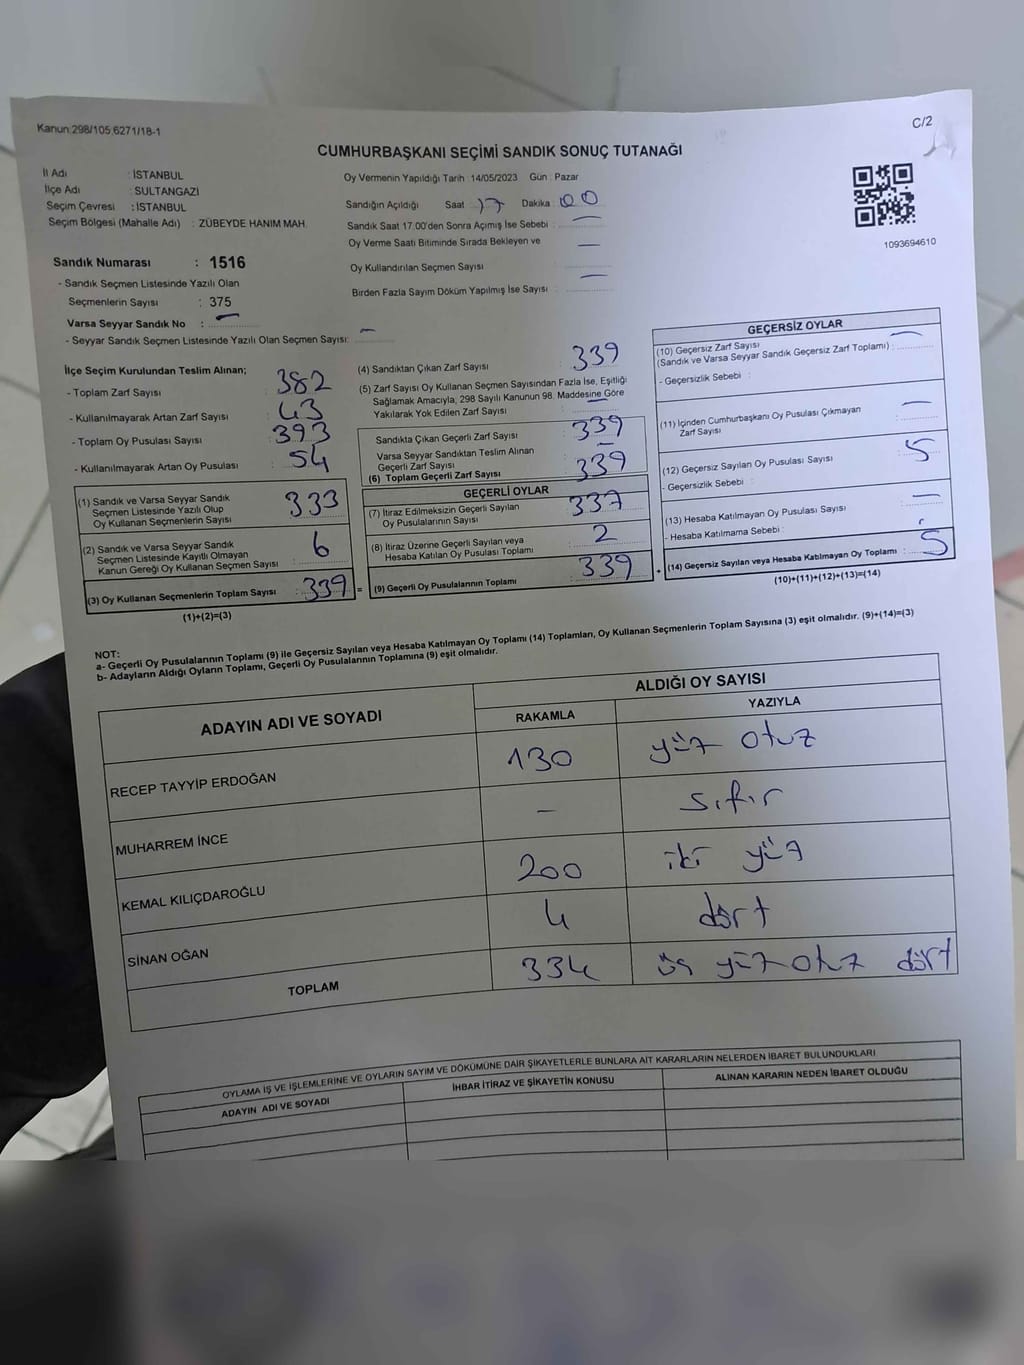 Kanun:298/105,6271/18-1
C/2
CUMHURBAŞKANI SEÇİMİ SANDIK SONUÇ TUTANAĞI
İl Adı : İSTANBUL
İlçe Adı : SULTANGAZİ
Seçim Çevresi : İSTANBUL
Seçim Bölgesi (Mahalle Adı) : ZÜBEYDE HANIM MAH.
Sandık Numarası : 1516
- Sandık Seçmen Listesinde Yazılı Olan
Seçmenlerin Sayısı : 375
Varsa Seyyar Sandık No : —
- Seyyar Sandık Seçmen Listesinde Yazılı Olan Seçmen Sayısı: —
Oy Vermenin Yapıldığı Tarih :14/05/2023 Gün : Pazar
Sandığın Açıldığı Saat 17 Dakika 00
Sandık Saat 17.00'den Sonra Açımış İse Sebebi : —
Oy Verme Saati Bitiminde Sırada Bekleyen ve —
Oy Kullandırılan Seçmen Sayısı :
Birden Fazla Sayım Döküm Yapılmış İse Sayısı : —
1093694610
İlçe Seçim Kurulundan Teslim Alınan;
- Toplam Zarf Sayısı : 382
- Kullanılmayarak Artan Zarf Sayısı : 43
- Toplam Oy Pusulası Sayısı : 393
- Kullanılmayarak Artan Oy Pusulası : 54
(1) Sandık ve Varsa Seyyar Sandık
Seçmen Listesinde Yazılı Olup
Oy Kullanan Seçmenlerin Sayısı : 333
(2) Sandık ve Varsa Seyyar Sandık
Seçmen Listesinde Kayıtlı Olmayan
Kanun Gereği Oy Kullanan Seçmen Sayısı : 6
(3) Oy Kullanan Seçmenlerin Toplam Sayısı : 339 =
(1)+(2)=(3)
(4) Sandıktan Çıkan Zarf Sayısı : 339
(5) Zarf Sayısı Oy Kullanan Seçmen Sayısından Fazla İse, Eşitliği
Sağlamak Amacıyla, 298 Sayılı Kanunun 98. Maddesine Göre
Yakılarak Yok Edilen Zarf Sayısı : —
Sandıkta Çıkan Geçerli Zarf Sayısı : 339
Varsa Seyyar Sandıktan Teslim Alınan
Geçerli Zarf Sayısı : —
(6) Toplam Geçerli Zarf Sayısı : 339
GEÇERLİ OYLAR
(7) İtiraz Edilmeksizin Geçerli Sayılan
Oy Pusulalarının Sayısı : 337
(8) İtiraz Üzerine Geçerli Sayılan veya
Hesaba Katılan Oy Pusulası Toplamı : 2
(9) Geçerli Oy Pusulalarının Toplamı : 339 +
GEÇERSİZ OYLAR
(10) Geçersiz Zarf Sayısı
(Sandık ve Varsa Seyyar Sandık Geçersiz Zarf Toplamı) : —
- Geçersizlik Sebebi :
(11) İçinden Cumhurbaşkanı Oy Pusulası Çıkmayan
Zarf Sayısı : —
(12) Geçersiz Sayılan Oy Pusulası Sayısı : 5
- Geçersizlik Sebebi :
(13) Hesaba Katılmayan Oy Pusulası Sayısı : —
- Hesaba Katılmama Sebebi :
(14) Geçersiz Sayılan veya Hesaba Katılmayan Oy Toplamı : 5
(10)+(11)+(12)+(13)=(14)
NOT:
a- Geçerli Oy Pusulalarının Toplamı (9) ile Geçersiz Sayılan veya Hesaba Katılmayan Oy Toplamı (14) Toplamları, Oy Kullanan Seçmenlerin Toplam Sayısına (3) eşit olmalıdır. (9)+(14)=(3)
b- Adayların Aldığı Oyların Toplamı, Geçerli Oy Pusulalarının Toplamına (9) eşit olmalıdır.
ADAYIN ADI VE SOYADI
ALDIĞI OY SAYISI
RAKAMLA YAZIYLA
RECEP TAYYİP ERDOĞAN 130 yüz otuz
MUHARREM İNCE – sıfır
KEMAL KILIÇDAROĞLU 200 iki yüz
SİNAN OĞAN 4 dört
TOPLAM 334 üç yüz otuz dört
OYLAMA İŞ VE İŞLEMLERİNE VE OYLARIN SAYIM VE DÖKÜMÜNE DAİR ŞİKAYETLERLE BUNLARA AİT KARARLARIN NELERDEN İBARET BULUNDUKLARI
ADAYIN ADI VE SOYADI İHBAR İTİRAZ VE ŞİKAYETİN KONUSU ALINAN KARARIN NEDEN İBARET OLDUĞU